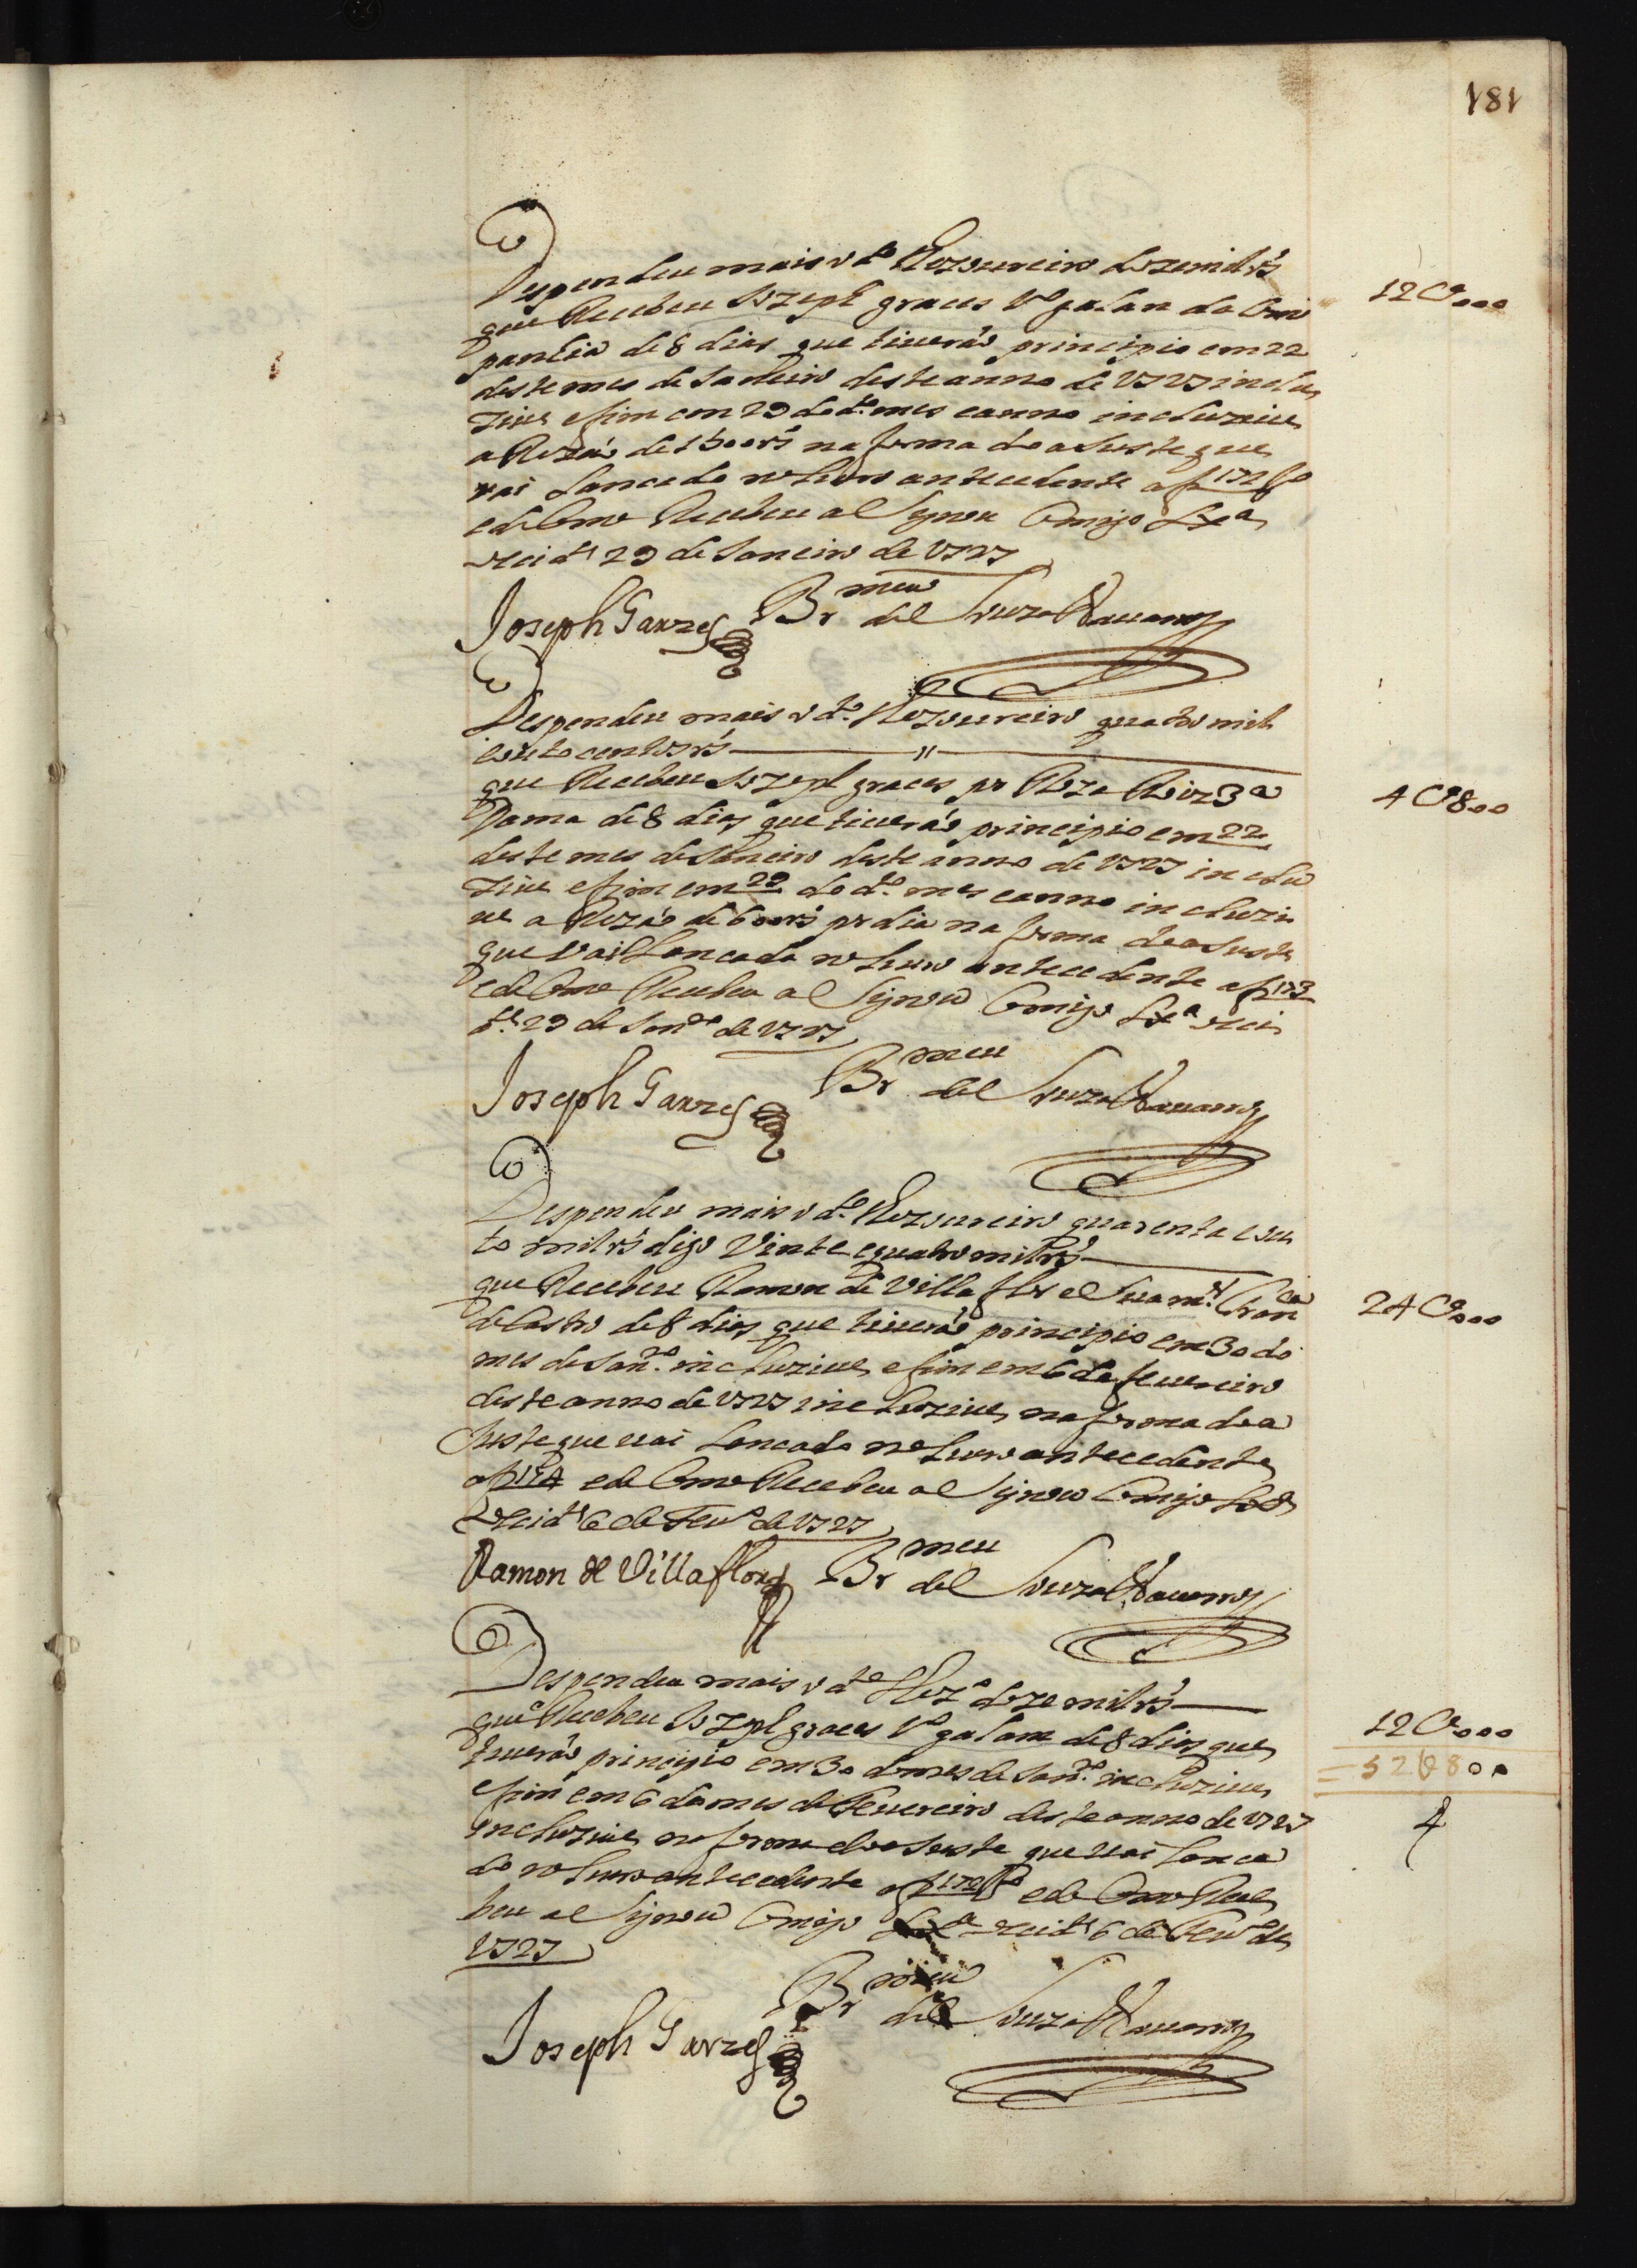 181
Despendeu mais o d.º Thezoureiro doze mil rs
12U000
que Recebeu Iozeph graces 1º galan da Com
panhia de 8 dias que tiuerão principio em 22
deste mes de Janeiro deste anno de 1727 inclu
ziue e fim em 29 do d.º mes e anno incluziue
a Rezão de 1500 rs na forma do aJuste que
vai Lancado no Liuro antecedente a f 172
e de Como Recebeu aSignou Comigo Lxª
occid.al 29 de Janeiro de 1727
Joseph Garzes Br.meu del Souza
Despendeu mais o d.º Thezoureiro quatro mil
e outo centos rs
que Recebeu Iozeph graces por Roza Roiz 3ª
4U800
Dama de 8 dias que tiuerão principio em 22
deste mes de Janeiro deste anno de 1727 inclu
ziue e fim em 29 do d.º mes e anno incluzi
ue a Rezão de 600 rs por dia na forma do aJuste
que vai Lancado no Liuro antecedente a f 173
e de Como Recebeu aSignou Comigo Lxª occi
d.al 29 de Jan.ro de 1727
Joseph Garzes Br.meu del Souza
Despendeu mais o d.º Thezoureiro quarenta e ou
to mil rs digo Vinte e quatro mil rs
que Recebeu Ramon de Villa flor e Sua m.er Fran.ca
24U000
de Castro de 8 dias que tiuerão principio em 30 do
mes de Jan.ro incluziue e fim em 6 de feuereiro
deste anno de 1727 incluziue na forma do a
Juste que uai Lancado no Liuro antecedente
a f 174 e de Como Recebeu aSignou Comigo Lxª
occid.al 6 de Feu.ro de 1727
Ramon de Villaflor Br.meu del Souza
Despendeu mais o d.º Thez.ro doze mil rs
que Recebeu Iozeph graces 1º galam de 8 dias que
12U000
tiuerão principio em 30 do mes de Jan.ro incluziue
52U800
e fim em 6 do mes de Feuereiro deste anno de 1727
incluziue na forma do aJuste que uai Lanca
do no Liuro antecedente a f 172 e de Como Rece
beu aSignou Comigo Lxª occid.al 6 de Feu.ro de
1727
Joseph Garzes Br.meu del Souza